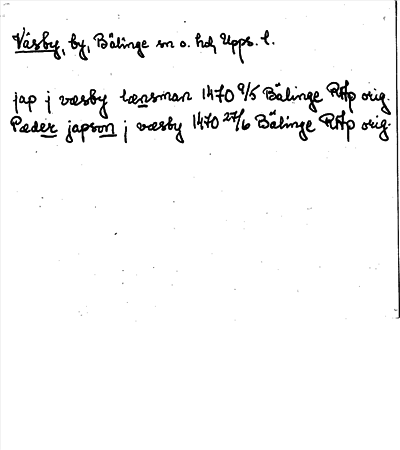 Väsby, by, Bälinge sn o. hd, Upps. l.
jap j væsby lænsman 1470 9/5 Bälinge RAp orig.
Pæder japson j væsby 1470 27/6 Bälinge RAp orig.